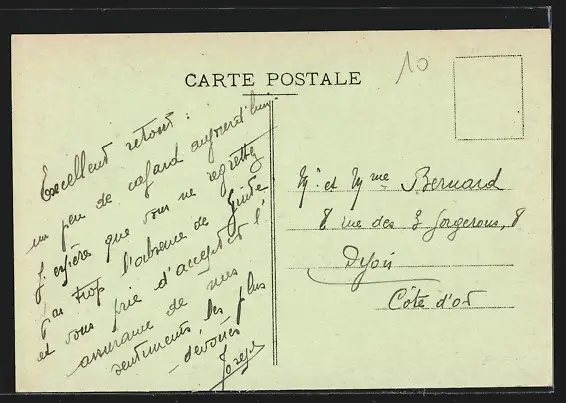 10
CARTE POSTALE
Excellent retour :
un peu de cafard aujourd'hui.
J'espères que vous ne regrettez
pas trop l'absence de Guide
et vous prie d'accepter l'
assurance de mes
sentiments les plus
dévoués
Mr et Mme Bernard
8 rue des 3 Forgerons, 8
Dijon
Côte d'or